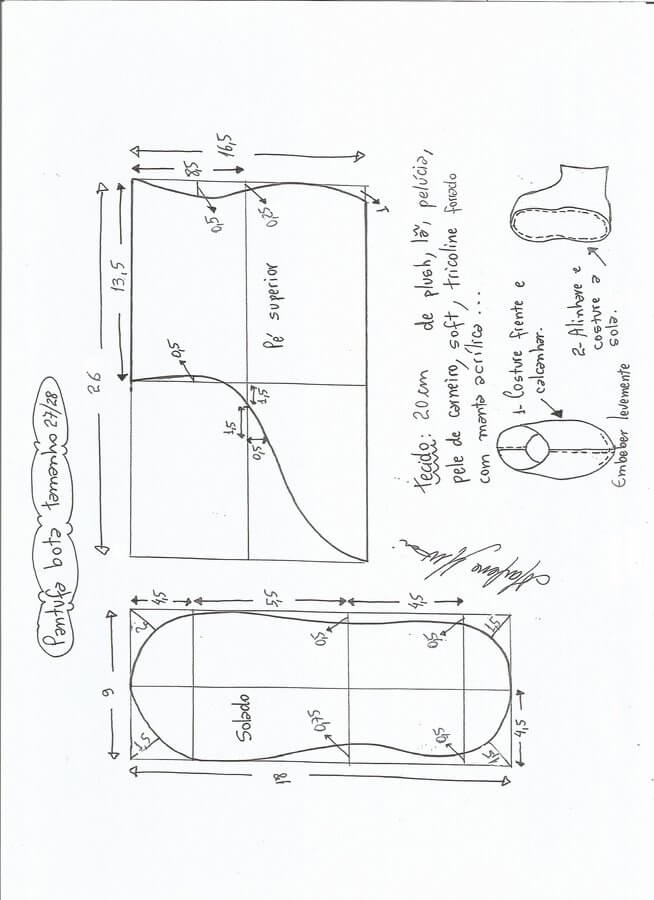 Pantufa bota tamanho 27/28
26
13,5
16,5
8,5
0,5
0,25
1
Pé superior
0,5
1,5
1,5
0,5
9
18
4,5
5,5
4,5
2
1,5
0,5
0,5
1,5
Solado
0,75
0,5
1,5
4,5
tecido: 20cm de plush, lã, pelúcia,
pele de carneiro, soft, tricoline forrado
com manta acrílica...
1- Costure frente e
calcanhar.
Embeber levemente
2- Alinhave e
costure a
sola.